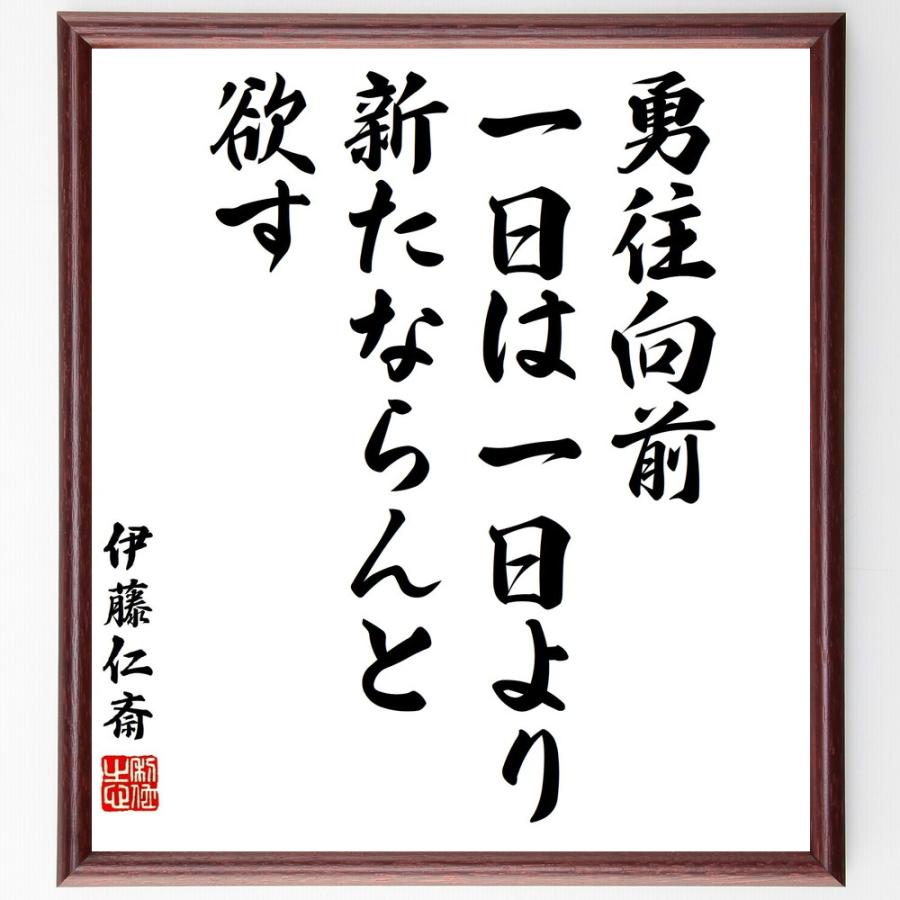 勇往向前
一日は一日より
新たならんと
欲す
伊藤仁斎